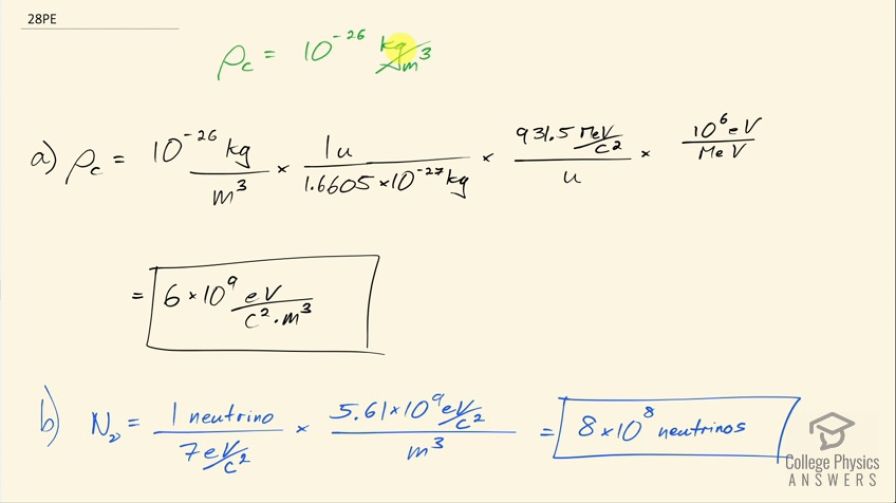 28PE
ρc = 10^-26 kg/m^3
a) ρc = 10^-26 kg/m^3 × 1u/1.6605×10^-27 kg × 931.5 MeV/c^2/u × 10^6 eV/MeV
= 6×10^9 eV/c^2·m^3
b) Nν = 1 neutrino/7eV/c^2 × 5.61×10^9 eV/c^2/m^3 = 8×10^8 neutrinos
College Physics
ANSWERS